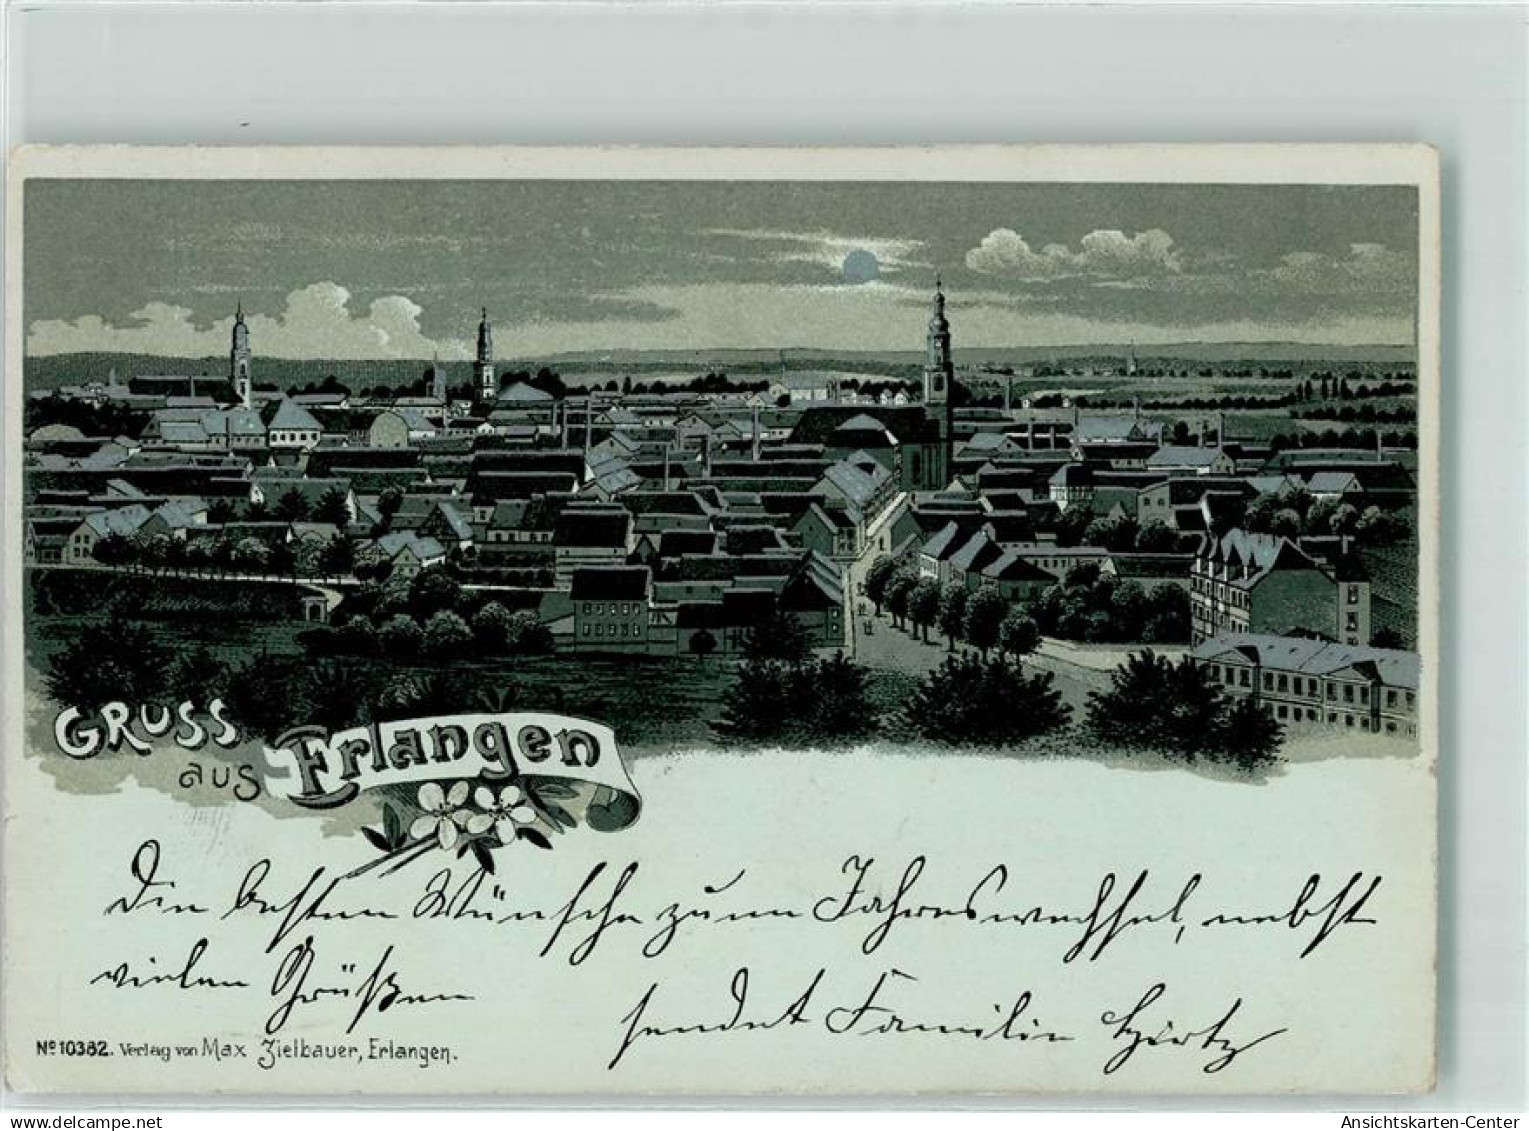 GRUSS
aus Erlangen
Die besten Wünsche zum Jahreswechsel, nebst
vielen Grüßen
sendet Familie Hirtz
No 10382. Verlag von Max Zielbauer, Erlangen.
oldthing
Ansichtskarten-Center